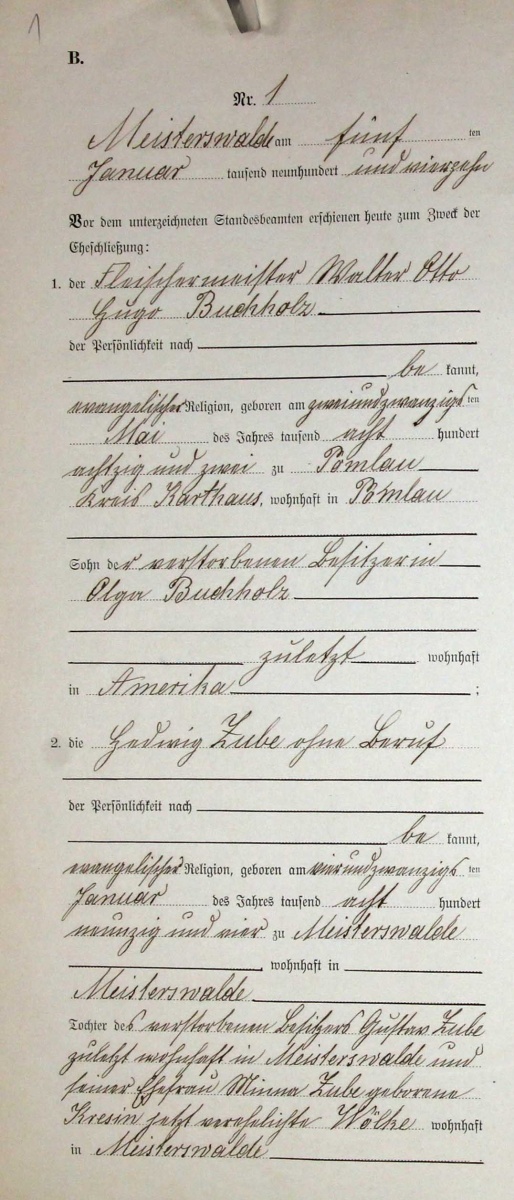 1
B.
Nr. 1
Meisterswalde am fünf ten
Januar tausend neunhundert und vierzehn
Vor dem unterzeichneten Standesbeamten erschienen heute zum Zweck der
Eheschließung:
1. der Fleischermeister Walter Otto
Hugo Buchholz
der Persönlichkeit nach
be kannt,
evangelischer Religion, geboren am zweiundzwanzigs ten
Mai des Jahres tausend acht hundert
achtzig und zwei zu Pömlau
Kreis Karthaus, wohnhaft in Pömlau
Sohn der verstorbenen Besitzerin
Olga Buchholz
zuletzt wohnhaft
in Amerika ;
2. die Hedwig Zube ohne Beruf
der Persönlichkeit nach
be kannt,
evangelischer Religion, geboren am vierundzwanzigs ten
Januar des Jahres tausend acht hundert
neunzig und vier zu Meisterswalde
, wohnhaft in
Meisterswalde
Tochter des verstorbenen Besitzers Gustav Zube
zuletzt wohnhaft in Meisterswalde und
seiner Ehefrau Minna Zube geborene
Kresin jetzt verehelichte Wölke wohnhaft
in Meisterswalde